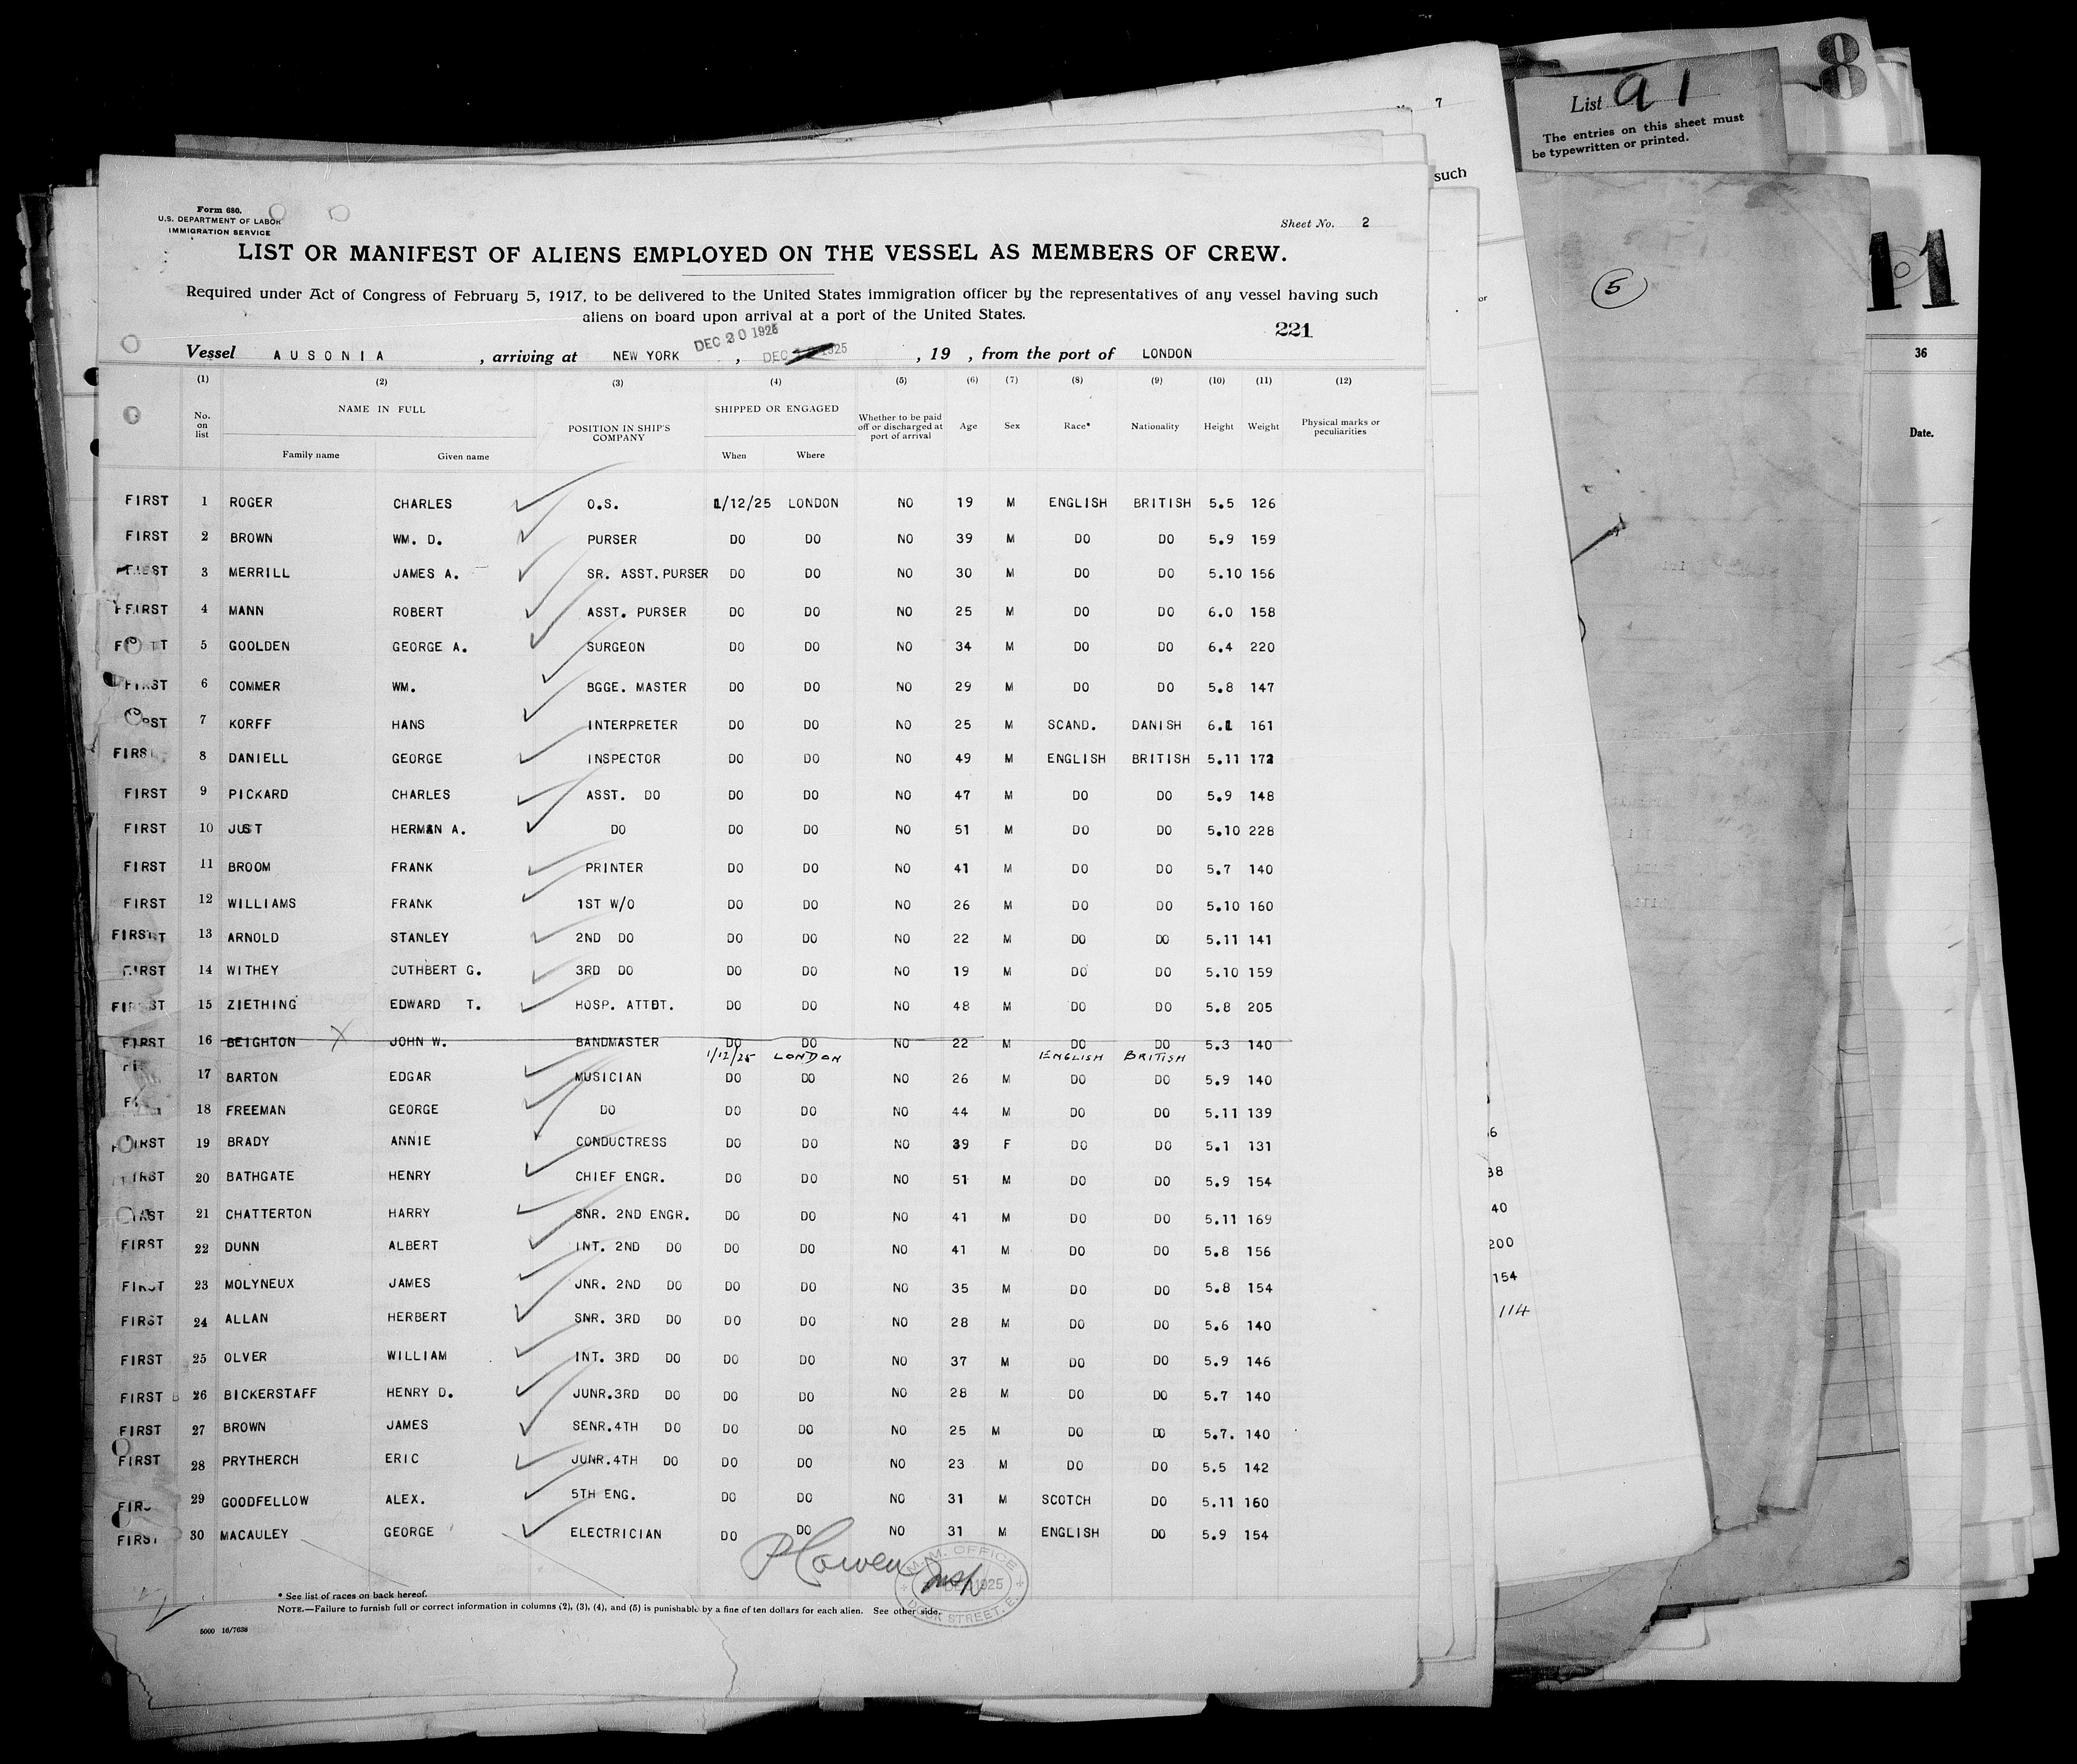 8
List 91
The entries on this sheet must
be typewritten or printed.
7
such
11
5
or
36
Date.
Form 680.
U.S. DEPARTMENT OF LABOR
IMMIGRATION SERVICE
Sheet No. 2
LIST OR MANIFEST OF ALIENS EMPLOYED ON THE VESSEL AS MEMBERS OF CREW.
Required under Act of Congress of February 5, 1917, to be delivered to the United States immigration officer by the representatives of any vessel having such
aliens on board upon arrival at a port of the United States.
221
DEC 20 1925
Vessel AUSONIA, arriving at NEW YORK, DEC 1925, 19 , from the port of LONDON
(1) (2) (3) (4) (5) (6) (7) (8) (9) (10) (11) (12)
No. on list NAME IN FULL Family name Given name POSITION IN SHIP'S COMPANY SHIPPED OR ENGAGED When Where Whether to be paid off or discharged at port of arrival Age Sex Race* Nationality Height Weight Physical marks or peculiarities
FIRST 1 ROGER CHARLES O.S. 1/12/25 LONDON NO 19 M ENGLISH BRITISH 5.5 126
FIRST 2 BROWN WM. D. PURSER DO DO NO 39 M DO DO 5.9 159
FIRST 3 MERRILL JAMES A. SR. ASST.PURSER DO DO NO 30 M DO DO 5.10 156
FIRST 4 MANN ROBERT ASST. PURSER DO DO NO 25 M DO DO 6.0 158
5 GOOLDEN GEORGE A. SURGEON DO DO NO 34 M DO DO 6.4 220
FIRST 6 COMMER WM. BGGE. MASTER DO DO NO 29 M DO DO 5.8 147
7 KORFF HANS INTERPRETER DO DO NO 25 M SCAND. DANISH 6.1 161
FIRST 8 DANIELL GEORGE INSPECTOR DO DO NO 49 M ENGLISH BRITISH 5.11 172
FIRST 9 PICKARD CHARLES ASST. DO DO DO NO 47 M DO DO 5.9 148
FIRST 10 JUST HERMAN A. DO DO DO NO 51 M DO DO 5.10 228
FIRST 11 BROOM FRANK PRINTER DO DO NO 41 M DO DO 5.7 140
FIRST 12 WILLIAMS FRANK 1ST W/O DO DO NO 26 M DO DO 5.10 160
FIRST 13 ARNOLD STANLEY 2ND DO DO DO NO 22 M DO DO 5.11 141
FIRST 14 WITHEY CUTHBERT G. 3RD DO DO DO NO 19 M DO DO 5.10 159
FIRST 15 ZIETHING EDWARD T. HOSP. ATTDT. DO DO NO 48 M DO DO 5.8 205
FIRST 16 BEIGHTON X JOHN W. BANDMASTER DO DO NO 22 M DO DO 5.3 140
1/12/25 LONDON ENGLISH BRITISH
17 BARTON EDGAR MUSICIAN DO DO NO 26 M DO DO 5.9 140
18 FREEMAN GEORGE DO DO DO NO 44 M DO DO 5.11 139
FIRST 19 BRADY ANNIE CONDUCTRESS DO DO NO 39 F DO DO 5.1 131
FIRST 20 BATHGATE HENRY CHIEF ENGR. DO DO NO 51 M DO DO 5.9 154
FIRST 21 CHATTERTON HARRY SNR. 2ND ENGR. DO DO NO 41 M DO DO 5.11 169
FIRST 22 DUNN ALBERT INT. 2ND DO DO DO NO 41 M DO DO 5.8 156
FIRST 23 MOLYNEUX JAMES JNR. 2ND DO DO DO NO 35 M DO DO 5.8 154
FIRST 24 ALLAN HERBERT SNR. 3RD DO DO DO NO 28 M DO DO 5.6 140
FIRST 25 OLVER WILLIAM INT. 3RD DO DO DO NO 37 M DO DO 5.9 146
FIRST 26 BICKERSTAFF HENRY D. JUNR.3RD DO DO DO NO 28 M DO DO 5.7 140
FIRST 27 BROWN JAMES SENR.4TH DO DO DO NO 25 M DO DO 5.7. 140
FIRST 28 PRYTHERCH ERIC JUNR.4TH DO DO DO NO 23 M DO DO 5.5 142
FIRST 29 GOODFELLOW ALEX. 5TH ENG. DO DO NO 31 M SCOTCH DO 5.11 160
FIRST 30 MACAULEY GEORGE ELECTRICIAN DO DO NO 31 M ENGLISH DO 5.9 154
M.M. OFFICE
1925
DOCK STREET. E.
* See list of races on back hereof.
NOTE.—Failure to furnish full or correct information in columns (2), (3), (4), and (5) is punishable by a fine of ten dollars for each alien. See other side.
5000 16/7638
40
200
154
114